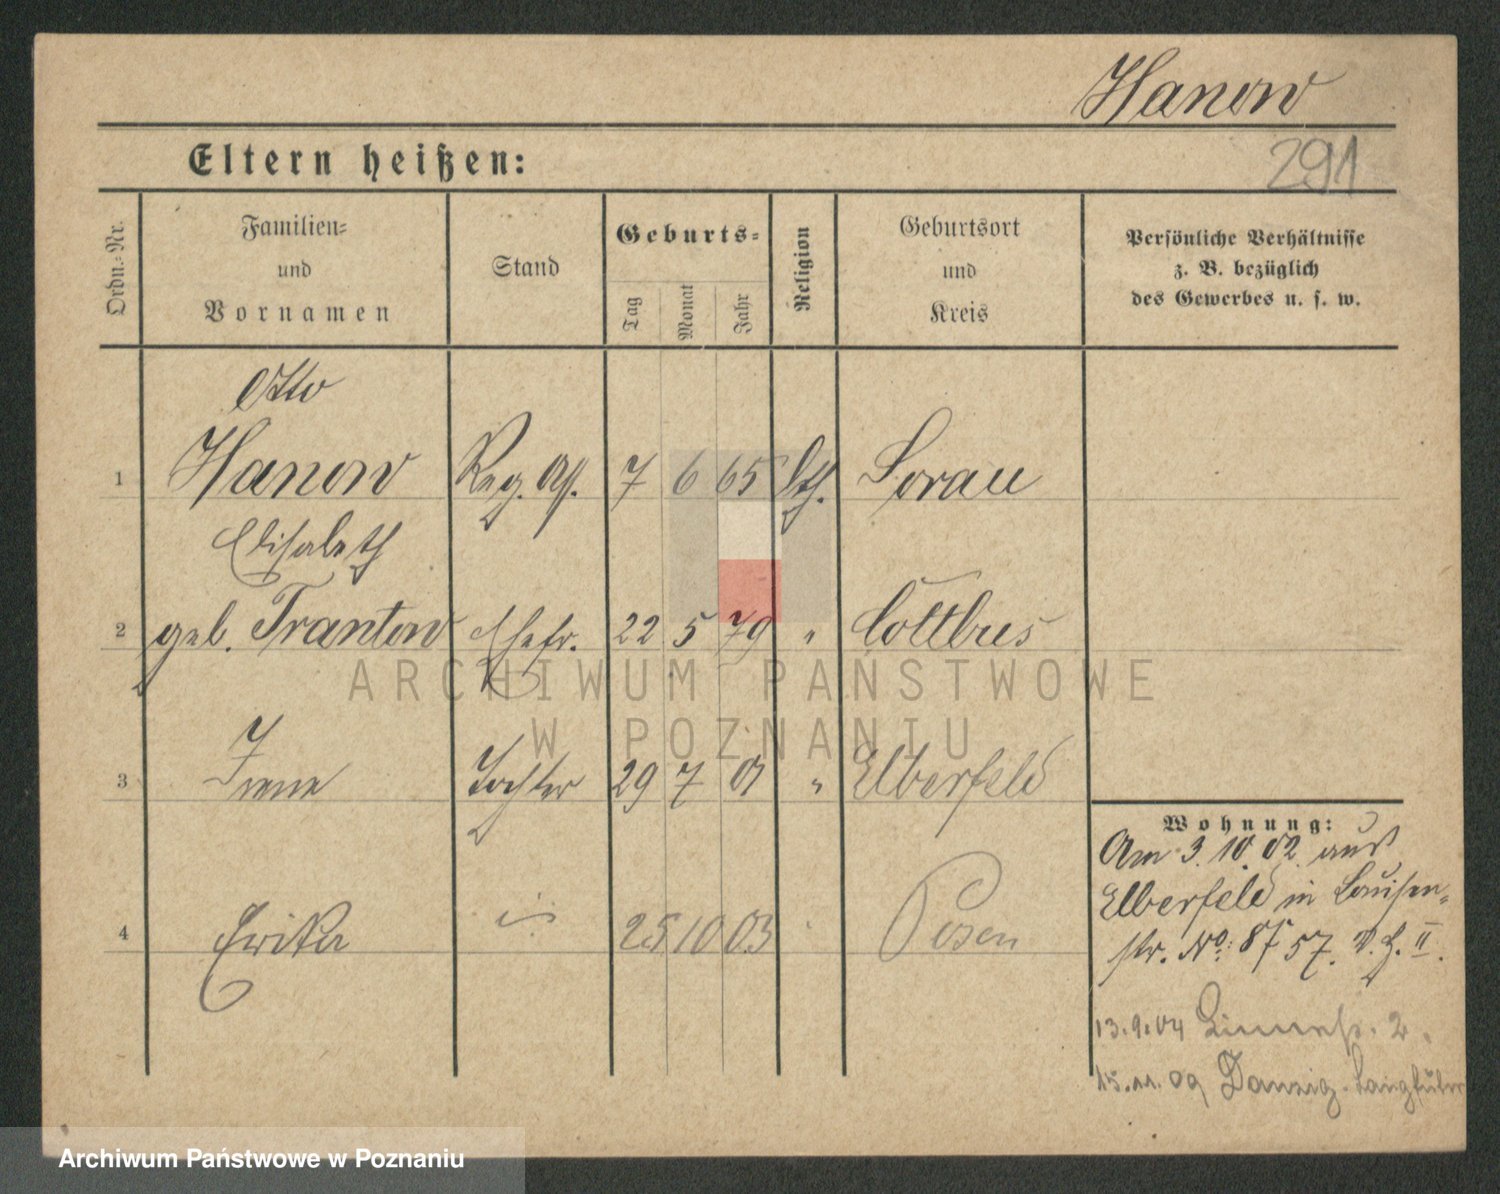 Hanow
Eltern heißen:
291
Ordn.-Nr.
Familien-
und
Vornamen
Stand
Geburts-
Tag
Monat
Jahr
Religion
Geburtsort
und
Kreis
Persönliche Verhältnisse
z. B. bezüglich
des Gewerbes u. s. w.
Otto
1 Hanow Reg. 7 6 65 Sorau
Elisabeth
2 geb. Trantow Ehefr. 22 5 79 " Cottbus
3 Irene Tochter 29 7 01 " Elberfeld
4 Erika " 25 10 03 Posen
Wohnung:
Am 3.10.02 aus
Elberfeld in Louisen-
str. No: 57. V. H. II.
13.9.04 2.
15.11.09 Danzig-Langfuhr
ARCHIWUM PAŃSTWOWE
W POZNANIU
Archiwum Państwowe w Poznaniu